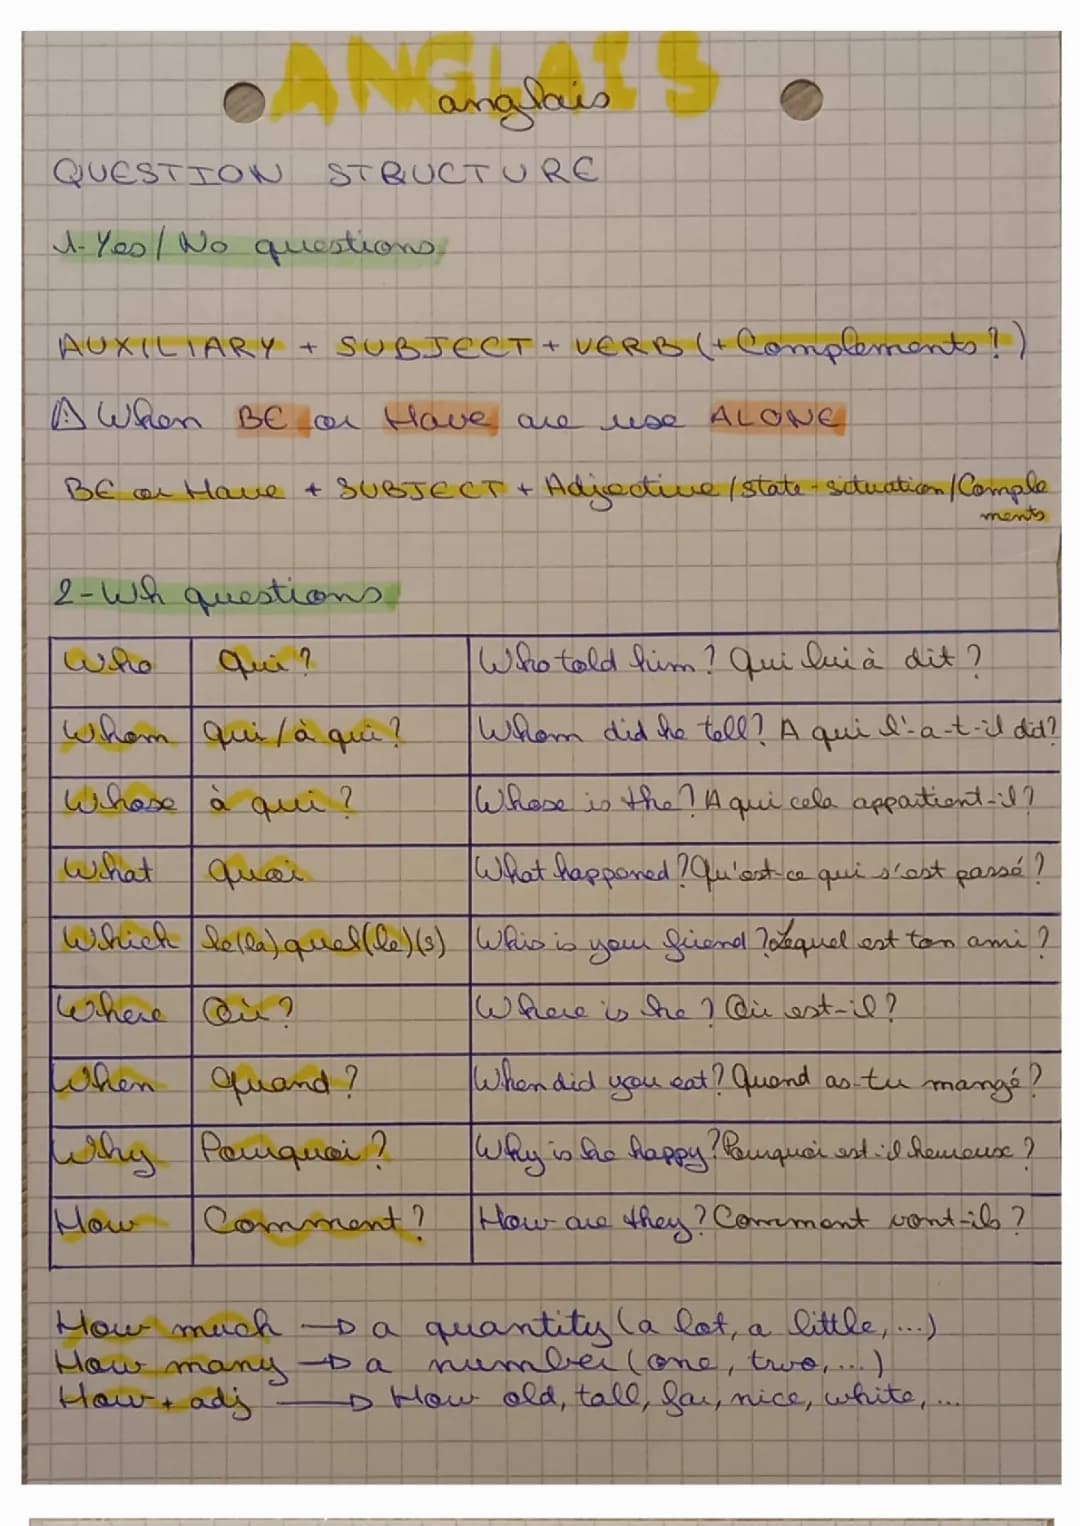 ANGLAIS
anglais
QUESTION STRUCTURE
1-Yes/No questions
AUXILIARY + SUBJECT + VERB (+ Complements?)
⚠ When BE or Have are use ALONE
BE or Have + SUBJECT + Adjective/state-situation/Comple
ments
2-Wh questions
Who Qui? Who told him? Qui lui à dit?
Whom Qui/à qui? Whom did he tell? A qui l'-a-t-il dit?
Whose à qui? Whose is the? A qui cela appartient-il?
What Quoi What happened? Qu'est-ce qui s'est passé?
Which le(la)quel(le)(s) Whis is your friend? Lequel est ton ami?
Where Où? Where is he? Où est-il?
When Quand? When did you eat? Quand as-tu mangé?
Why Pourquoi? Why is he happy? Pourquoi est-il heureux?
How Comment? How are they? Comment vont-ils?
How much → a quantity (a lot, a little,...)
How many → a number (one, two,...)
How + adj → How old, tall, far, nice, white,...